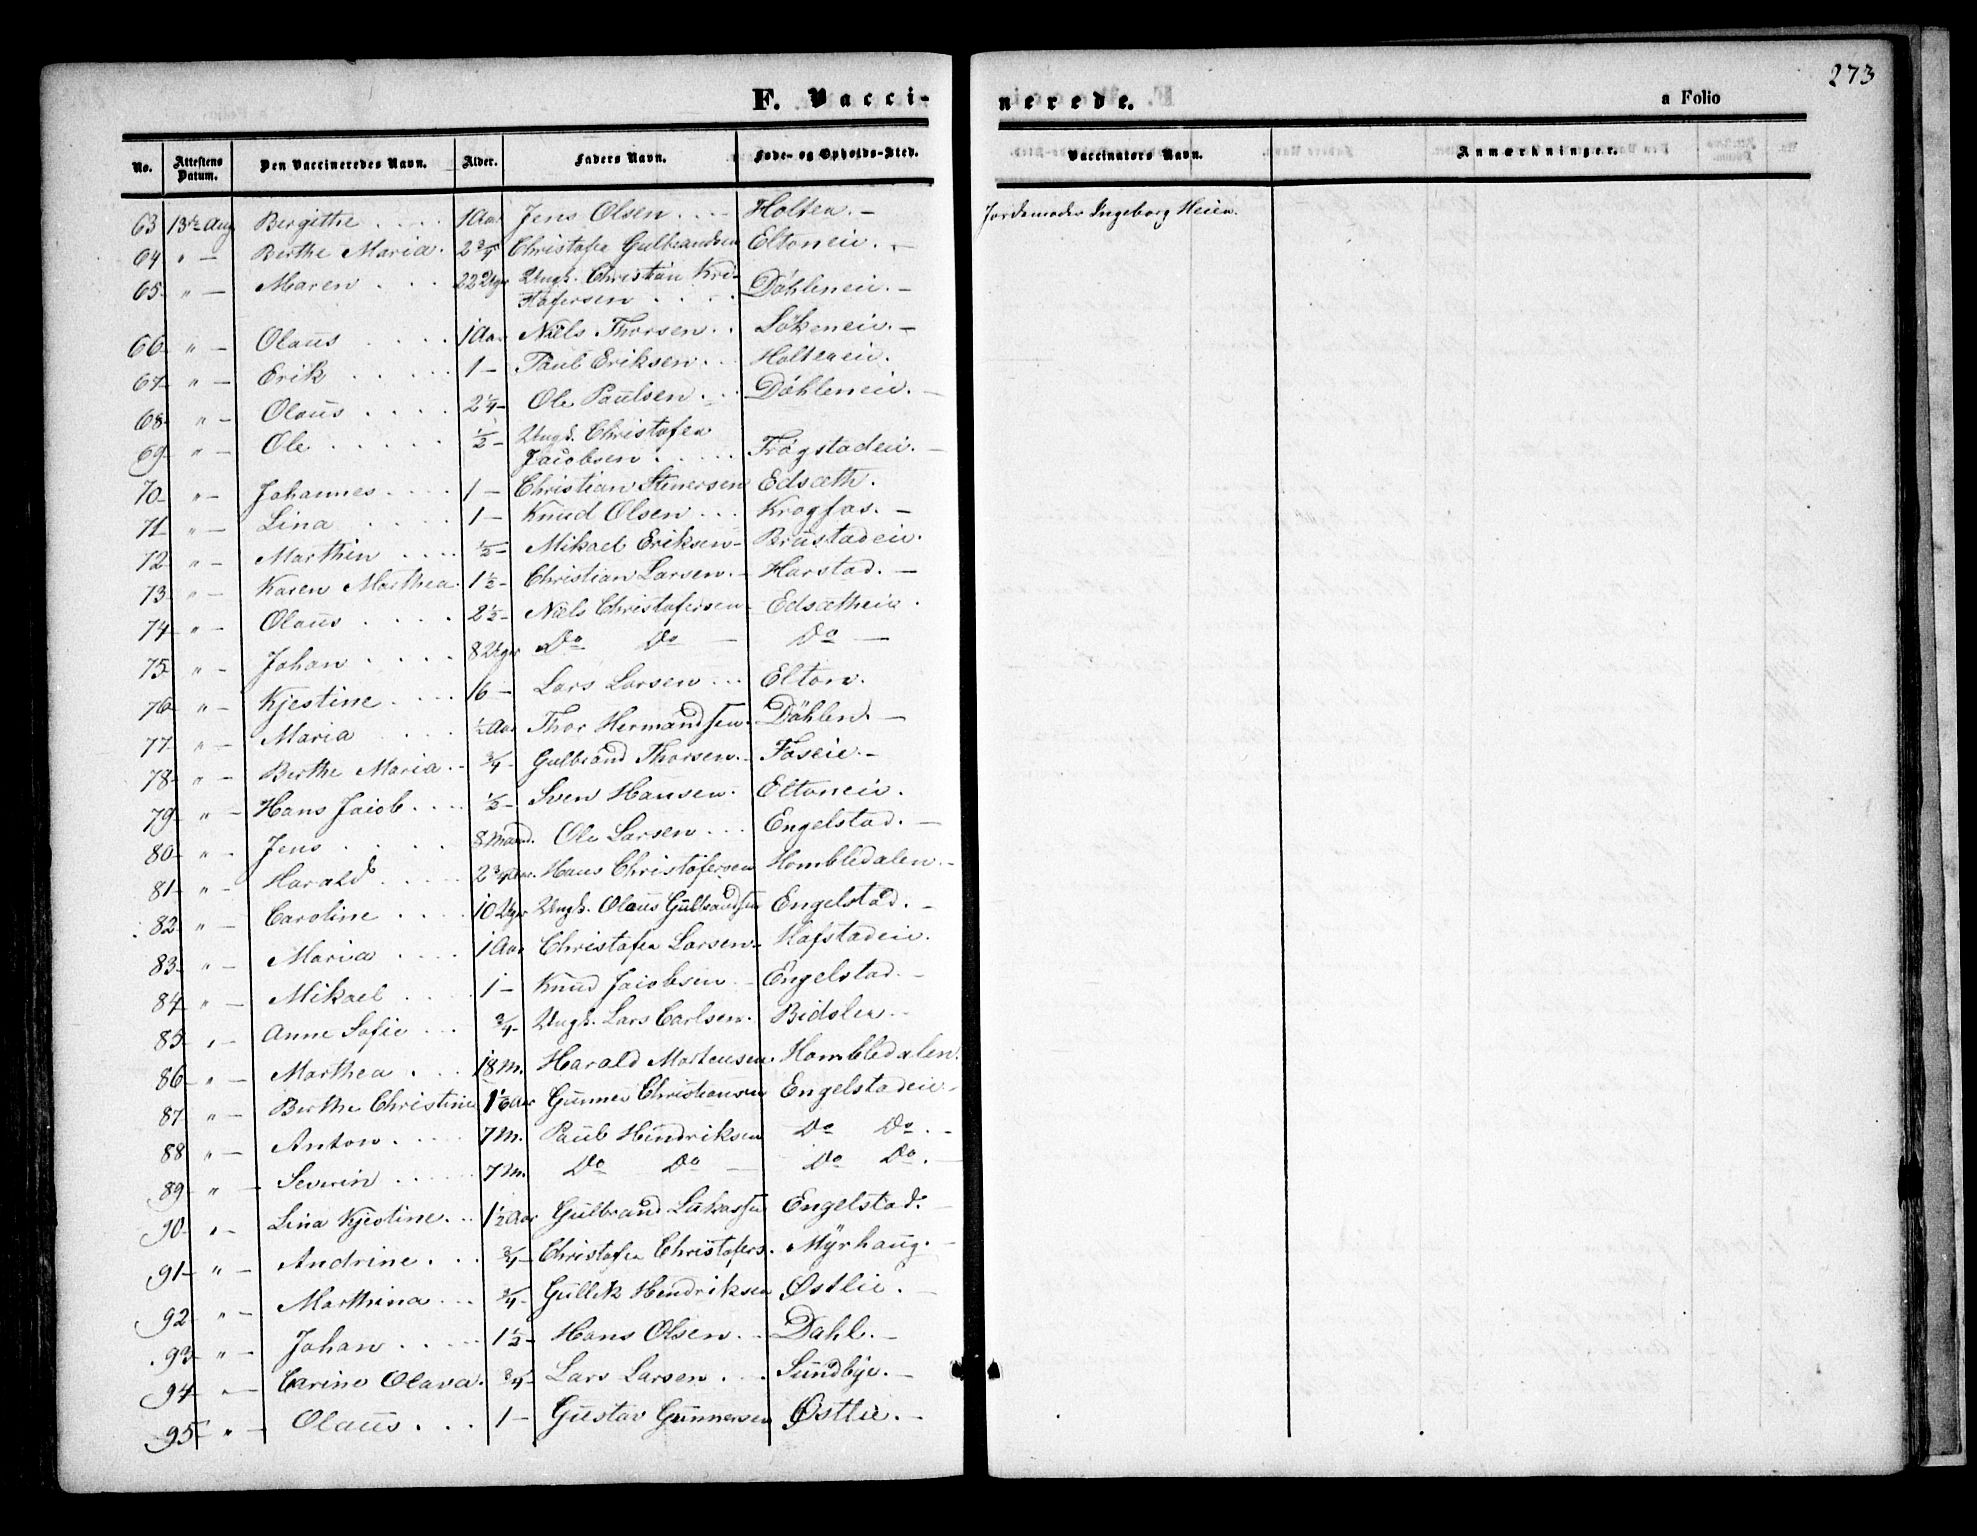 273
F. Vacci-
nerede.
a Folio
No. Attestens Datum. Den Vaccineredes Navn. Alder. Faders Navn. Føde- og Opholds-Sted. Vaccinators Navn. Anmærkninger.
63 13de Aug Bergithe . . . . 1 Aar Jens Olsen . . . Holten. – Jordemoder Ingeborg Heien.
64 " – Berthe Maria. 2 3/4 Christofer Gulbrandsen Eltoneie. –
65 " – Maren . . . 22 Uger Ungk. Christian Kri-
stofersen . . . . Döhleneie. –
66 " – Olaus . . . . 1 Aar Niels Thorsen . . Lökeneie. –
67 " – Erik . . . . . 1 – Paul Eriksen . . Holteneie.
68 " – Olaus . . . . 2 1/4 – Ole Paulsen . . . Döhleneie. –
69 " – Ole . . . . . 1/2 – Ungk. Christofer
Jacobsen . . . . . Frögstadeie. –
70 " – Johannes . . . . 1 – Christian Stenersen Edsæth.
71 " – Lina . . . . 1 – Knud Olsen . . . Krogfos. –
72 " – Marthin . . . . 1/2 – Mikael Eriksen – Brustadeie.
73 " – Karen Marthea. 1 1/2 – Christian Larsen. – Harstad. –
74 " – Olaus . . . . 2 1/2 – Niels Christofersen Edsætheie.
75 " – Johan . . . . 8 Uger Do Do – Do –
76 " – Kjestine . . . 16 – Lars Larsen . . . Elton.
77 " – Maria . . . . 1/2 Aar Thor Hermandsen. Döhlen. –
78 " – Berthe Maria. – 3/4 – Gulbrand Thorsen. – Foseie. –
79 " – Hans Jacob . . . 1/2 – Sven Hansen. Eltoneie.
80 " – Jens . . . . . 8 Maand. Ole Larsen . . . Engelstad. –
81 " – Harald . . . . 2 3/4 Aar. Hans Christofersen Hombledalen. –
82 " – Caroline . . . . 10 Uger Ungk. Olaus Gulbrandsen Engelstad. –
83 " – Maria . . . . 1 Aar Christofer Larsen – Hofstadeie.
84 " – Mikael . . . . 1 – Knud Jacobsen . – Engelstad. –
85 " – Anne Sofie . . . 3/4 – Ungk. Lars Carlsen. Bidolen. –
86 " – Marthea . . . 18 M. Harald Mortensen. Hombledalen.
87 " – Berthe Christine Gunnes Christiansen Engelstadeie –
88 " – Anton . . . . 7 M. Paul Hendriksen Do Do. –
89 " – Severin . . . . 7 M. Do Do – Do Do. –
90 " – Lina Kjestine. . . 1 1/2 Aar Gulbrand Lukassen Engelstad. –
91 " – Andrine . . . 3/4 – Christofer Christofers. Myrhaug. –
92 " – Marthina . . . 3/4 – Gullik Hendriksen Østlie. –
93 " – Johan . . . . 1 1/2 – Hans Olsen . . . Dahl. –
94 " – Carine Olava. 3/4 – Lars Larsen . . . Sundbye. –
95 " – Olaus . . . 1 – Gustav Gunnersen Østlie. –